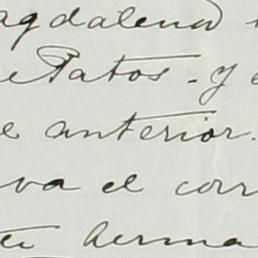 agdalena
e Patos - y e
e anterior.
va el corr
te herma